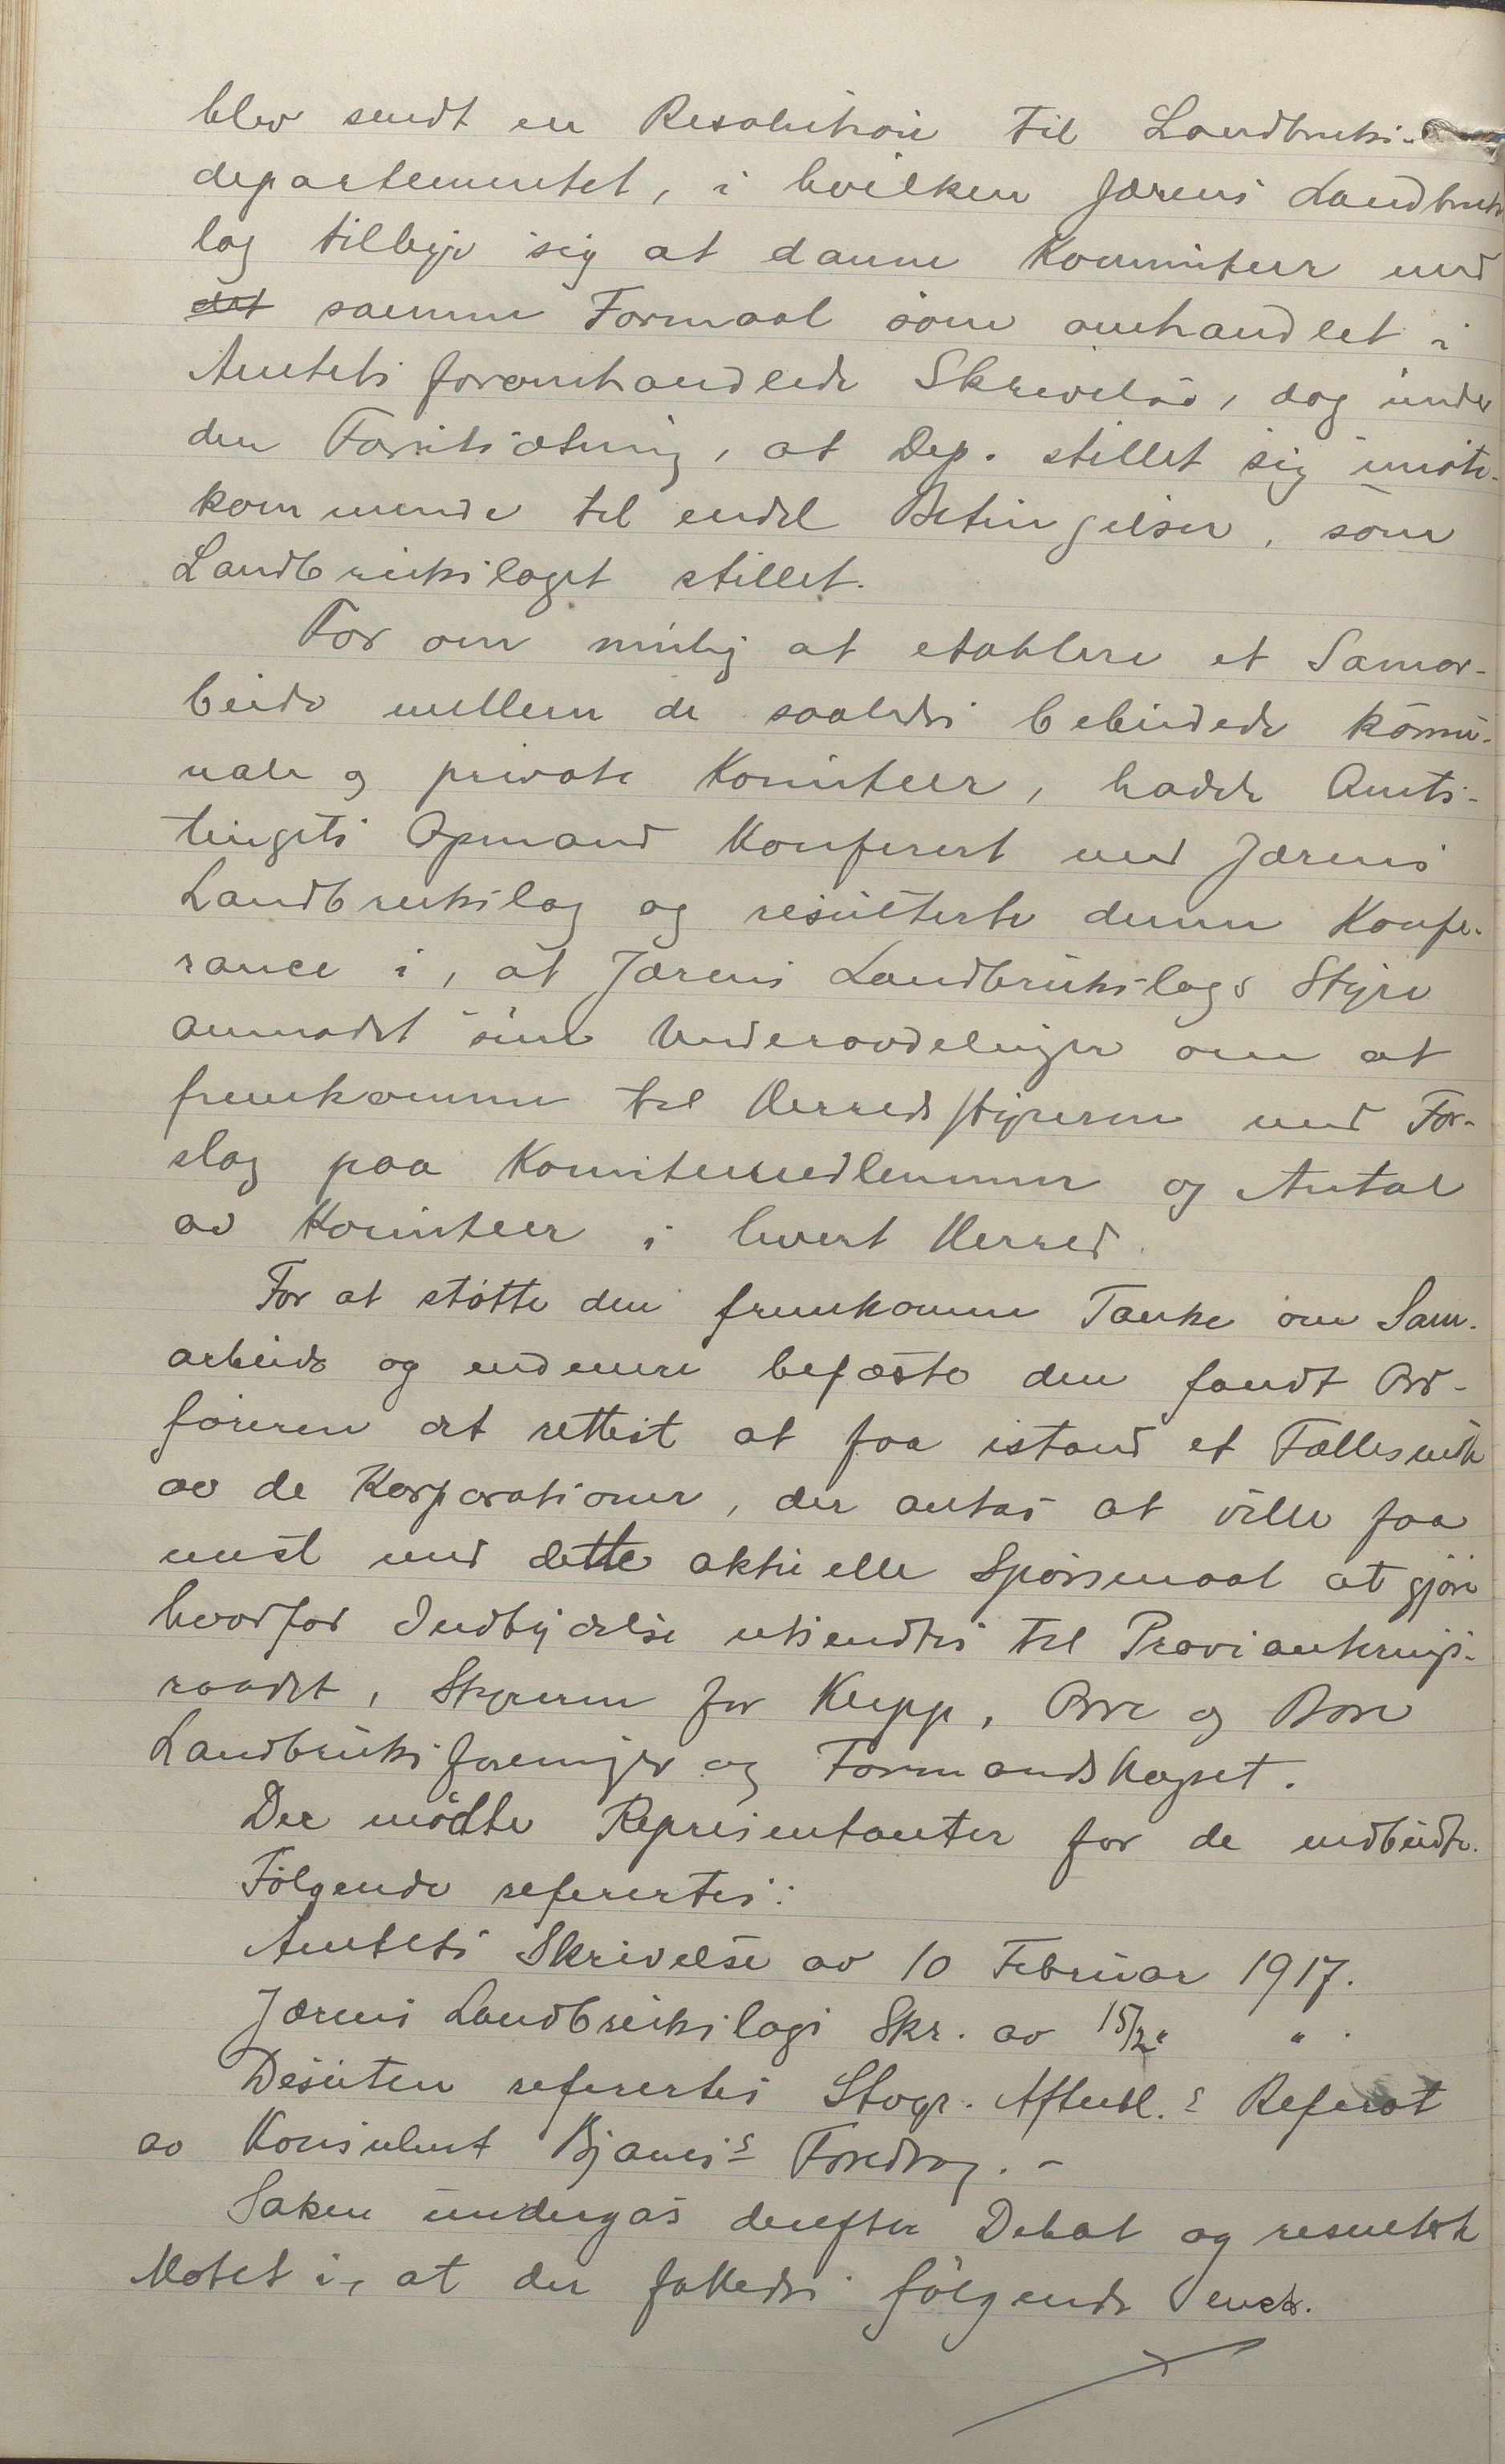 blev sendt en Resolution til Landbruks-
departementet, i hvilken Jærens Landbruks
lag tilbyr sig at danne Kommiteer med
det samme Formaal som omhandlet i
Amtets foromhandlede Skrivelse, dog under
den Forutsætning, at Dep. stillet sig imøte-
kommende til endel Betingelser, som
Landbrukslaget stillet.
For om mulig at etablere et Samar-
beide mellem de saaledes bebudede kommu-
nale og private Komiteer, hadde Amts-
tingets Opmand Konferert med Jærens
Landbrukslag og resulterte denne Konfe-
rance i, at Jærens Landbrukslags Styre
anmodet sine Underavdelinger om at
fremkomme til Herredsstyrerne med For-
slag paa Komitemedlemmer og Antal
av Komiteer i hvert Herred.
For at støtte den fremkomne Tanke om Sam-
arbeide og endmere befæste den fandt Ord-
føreren det rettest at faa istand et Fællesmøte
av de Korporationer, der antas at ville faa
mest med dette aktuelle Spørsmaal at gjøre
hvorfor Indbydelse utsendtes til Provianterings-
raadet, Styrerne for Klepp, Orre og Bore
Landbruksforeninger og Formandskapet.
Der mødte Representanter for de indbudte.
Følgende refertes:
Amtets Skrivelse av 10 Februar 1917.
Jærens Landbrukslags Skr. av 15/2 " " .
Desuten refertes Stvgr. Aftenbl.s Referat
av Konsulent Bjanes's Foredrag. -
Saken undergas derefter Debat og resulterte
Møtet i, at der fattedes følgende enst.